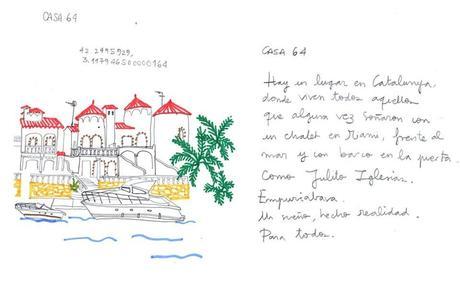 CASA: 64
42.2495929,
3.11794650000164
CASA 64
Hay un lugar en Catalunya,
donde viven todos aquellos
que alguna vez soñaron con
un chalet en Miami, frente al
mar y con barco en la puerta.
Como Julito Iglesias.
Empuriabrava.
Un sueño, hecho realidad.
Para todos.